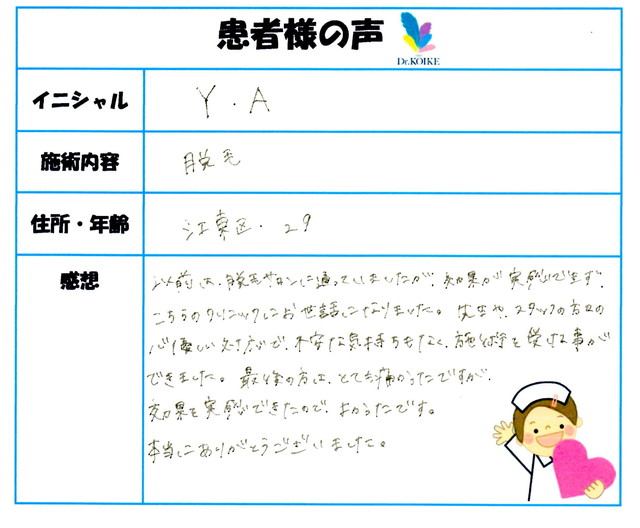 患者様の声
Dr.KOIKE
イニシャル
Y・A
施術内容
脱毛
住所・年齢
江東区・29
感想
以前は、脱毛サロンに通っていましたが、効果が実感できず、
こちらのクリニックにお世話になりました。先生や、スタッフの方々の
心優しい対応で、不安な気持ちもなく、施術を受ける事が
できました。最後の方は、とても痛かったですが、
効果を実感できたので、よかったです。
本当にありがとうございました。